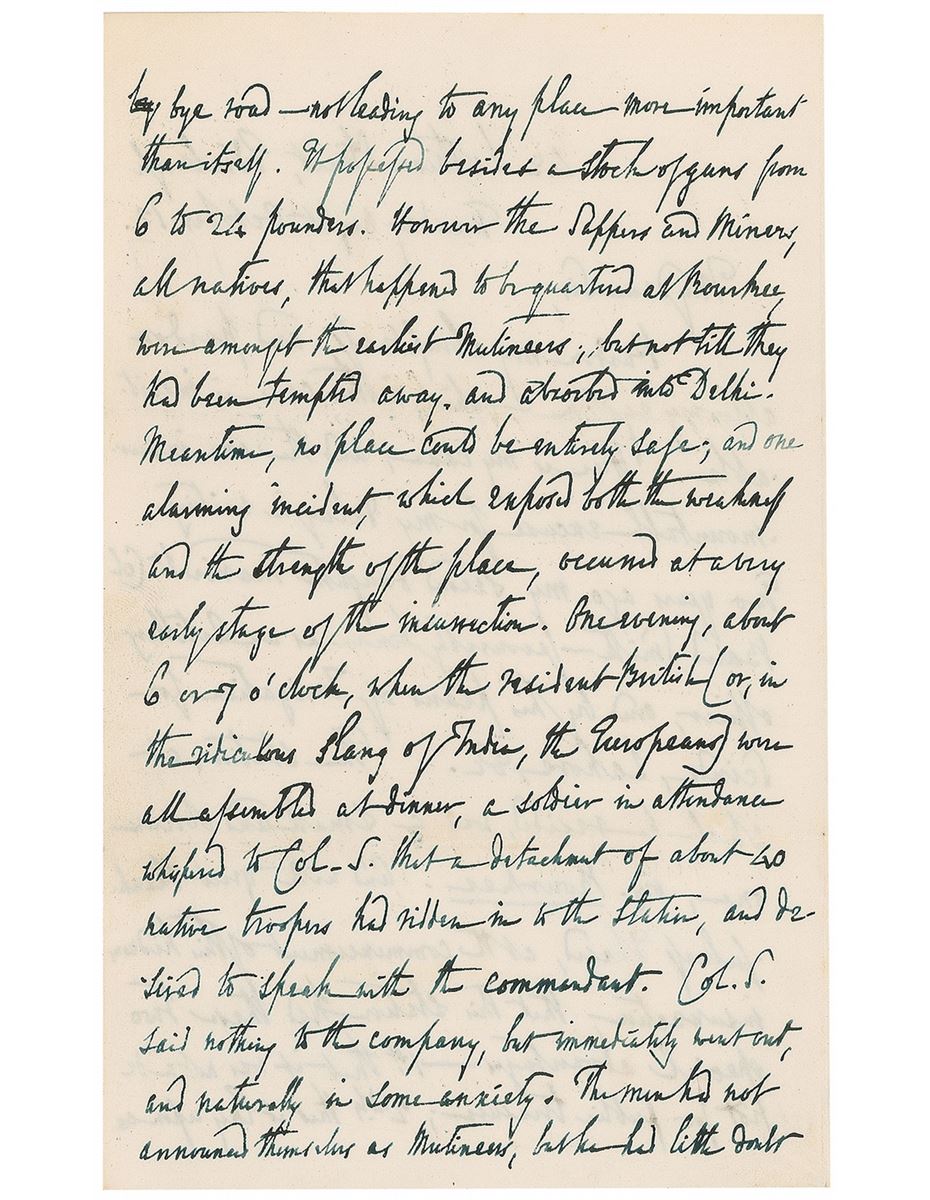 by bye road — not leading to any place more important
than itself. It possessed besides a stock of guns from
6 to 24 pounders. However the Sappers and Miners,
all natives, that happened to be quartered at Rourkee,
were amongst the earliest Mutineers; but not till they
had been tempted away, and absorbed into Delhi.
Meantime, no place could be entirely safe; and one
alarming incident, which exposed both the weakness
and the strength of the place, occurred at a very
early stage of the insurrection. One evening, about
6 or 7 o'clock, when the resident British (or, in
the ridiculous slang of India, the Europeans) were
all assembled at dinner, a soldier in attendance
whispered to Col. S. that a detachment of about 40
native troopers had ridden in to the Station, and de-
sired to speak with the commandant. Col. S.
said nothing to the company, but immediately went out,
and naturally in some anxiety. The men had not
announced themselves as Mutineers, but he had little doubt